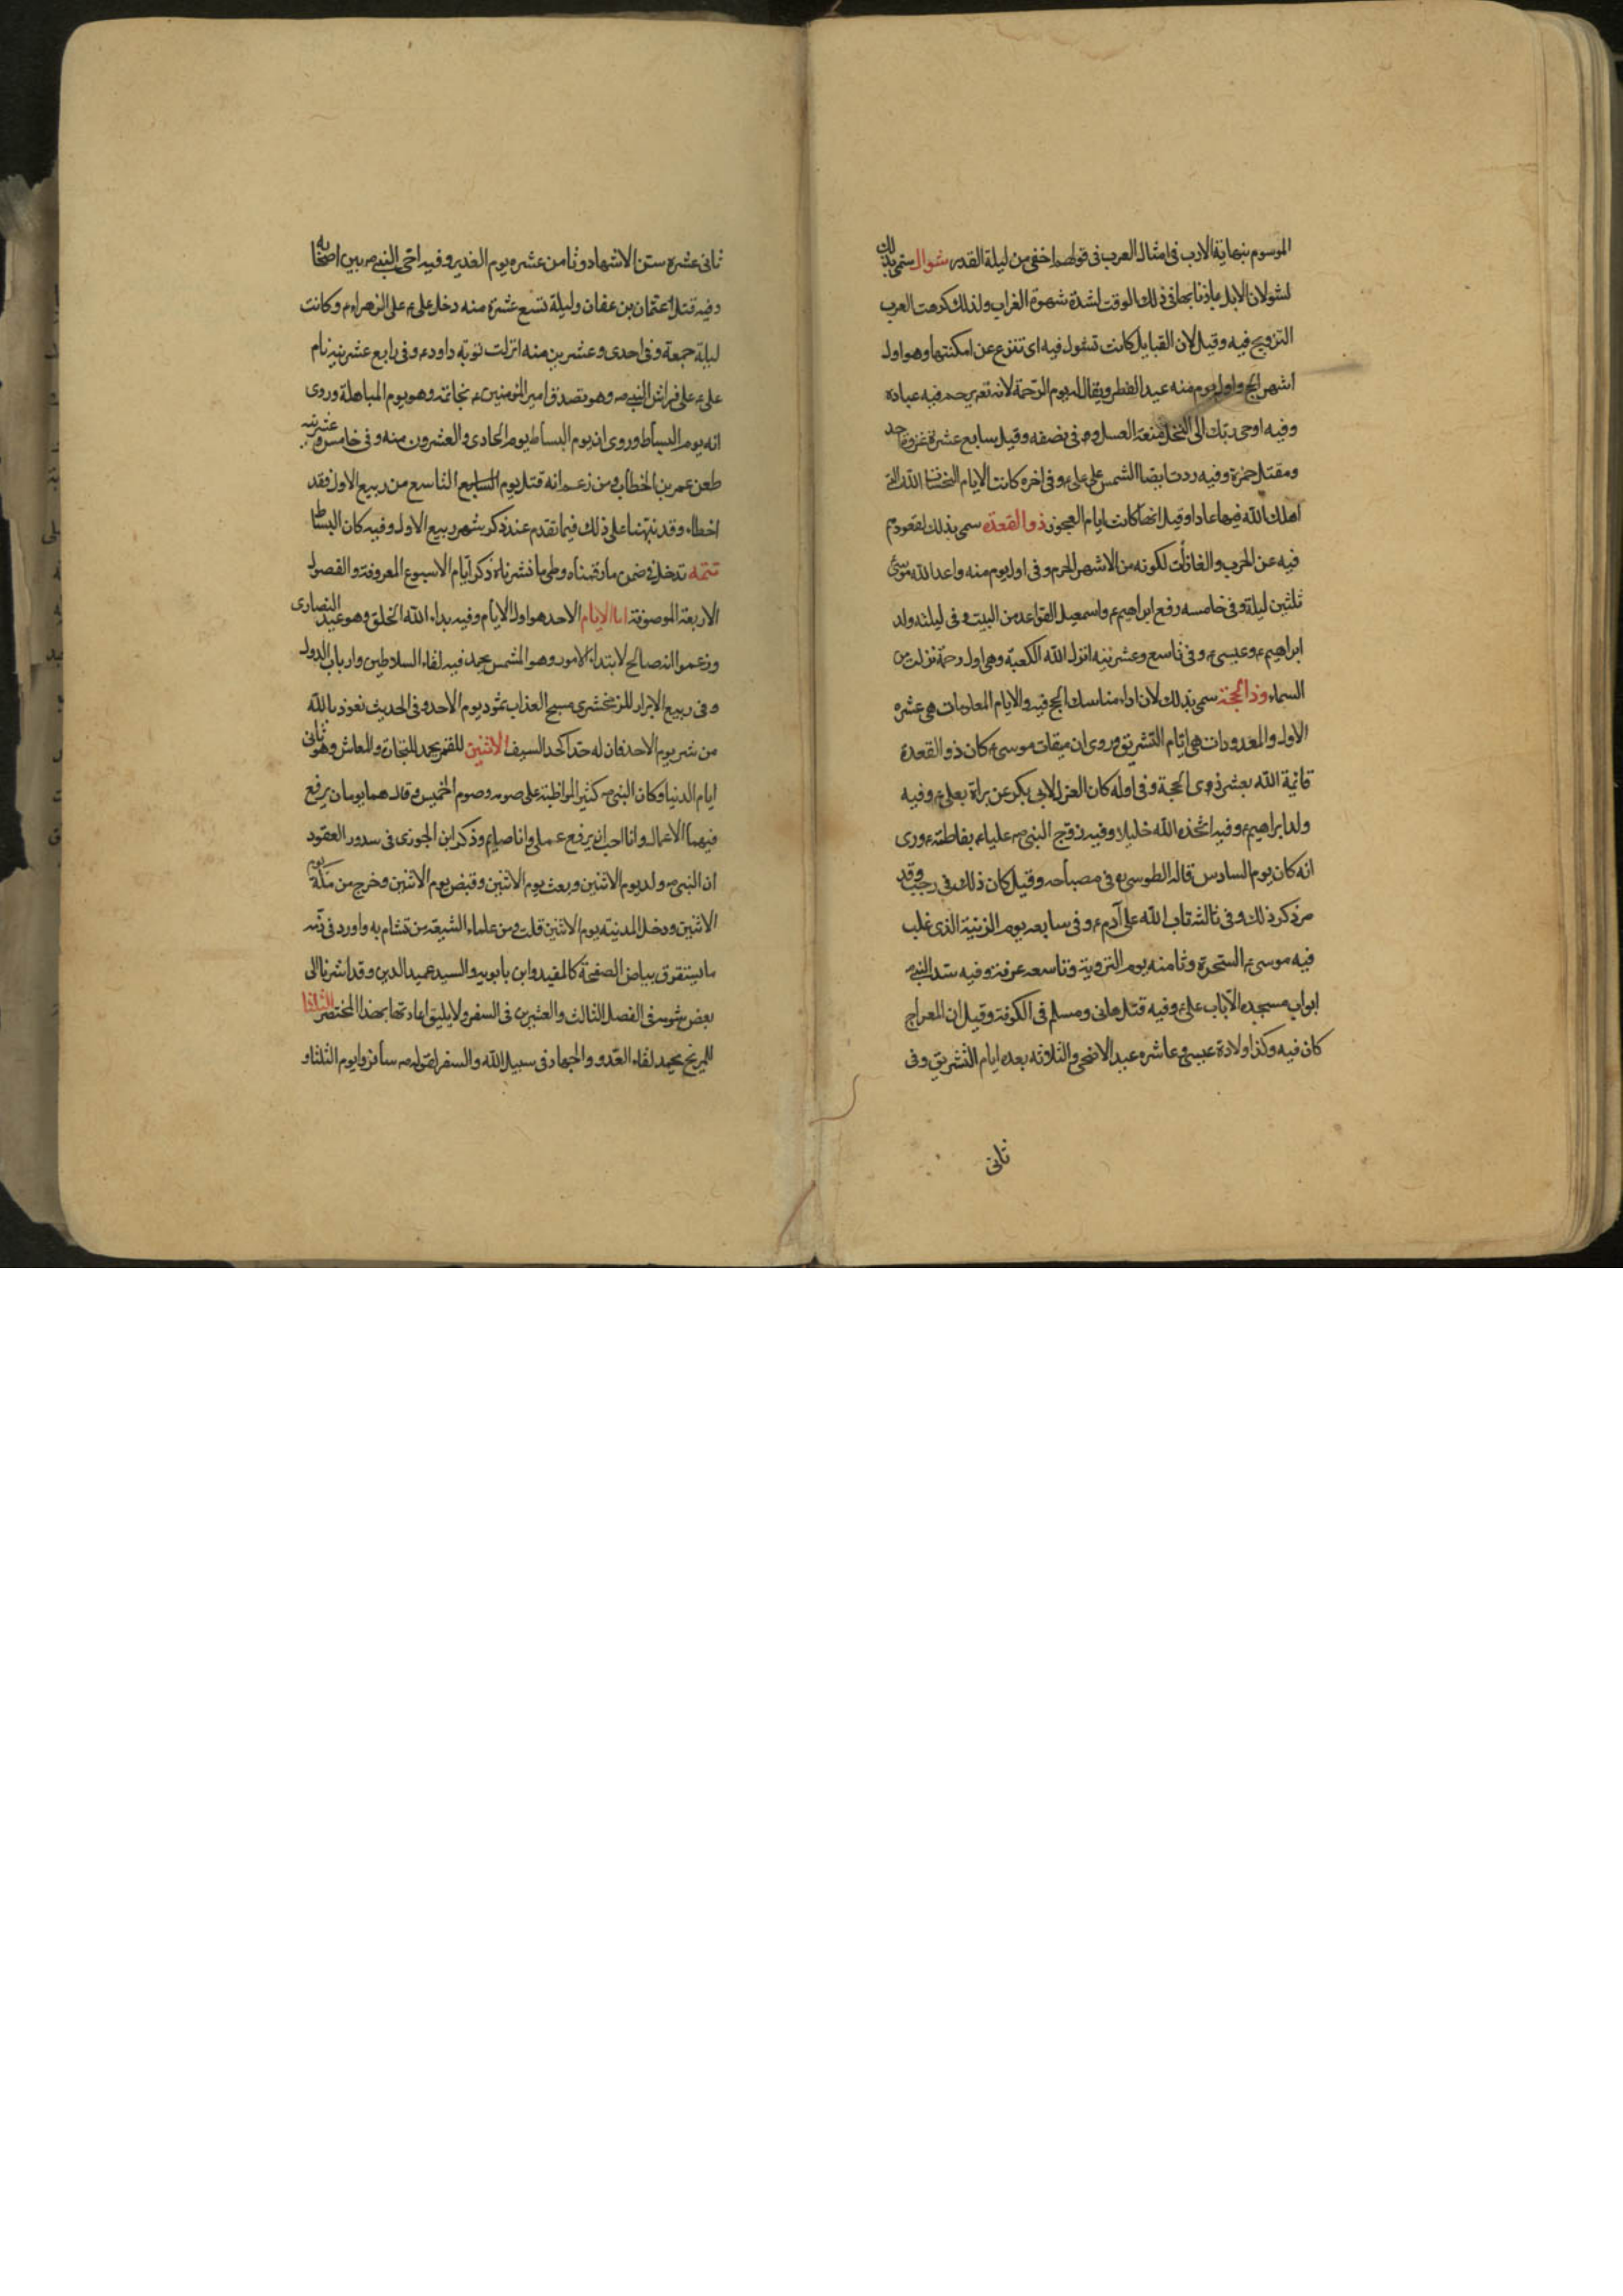 الموسوم بنهاية الادب فى امثال العرب فى قولهم اخفى من ليلة القدر شوال سمى بذلك
لشولان الابل باذنابها فى ذلك الوقت لشدة شهوة الضراب ولذلك كرهت العرب
التزويج فيه وقيل لان القبايل كانت تشول فيه اى تنزع عن امكنتها وهو اول
اشهر الحج واول يوم منه عيد الفطر ويقال له يوم الرحمة لانه تعم يرحم فيه عباده
وفيه اوحى ربك الى النحل صنعة العسل وفى نصفه وقيل سابع عشرة غزوة احد
ومقتل حمزة وفيه ردت ايضا الشمس على علىء وفى اخره كانت الايام النحسات التى
اهلك الله فيها عادا وقيل انها كانت ايام العجوز ذو القعدة سمى بذلك لقعودهم
فيه عن الحرب والغارات لكونه من الاشهر الحرم وفى اول يوم منه واعد الله موسى
ثلثين ليلة وفى خامسه رفع ابراهيم ء واسمعيل القواعد من البيت وفى ليلته ولد
ابراهيم ء وعيسى ء وفى تاسع وعشرينه انزل الله الكعبة وهى اول رحمة نزلت من
السماء وذا الحجة سمى بذلك لان اداء مناسك الحج فيه والايام المعلومات هى عشره
الاول والمعدودات هى ايام التشريق وروى ان ميقات موسى ء كان ذو القعدة
فاتمه الله بعشر ذوى الحجة وفى اوله كان العزل لابى بكر عن براة بعلى ء وفيه
ولد ابراهيم ء وفيه اتخذه الله خليلا وفيه زوج النبى ص عليا ء بفاطمة ء وروى
انه كان يوم السادس قاله الطوسى ره فى مصباحه وقيل كان ذلك فى رجب وقد
مر ذكر ذلك وفى ثالثه تاب الله على آدم ء وفى سابعه يوم الزينة الذى غلب
فيه موسى ء السحرة وثامنه يوم التروية وتاسعه عرفة وفيه سد النبى ص
ابواب مسجده الا باب على ء وفيه قتل هانى ومسلم فى الكوفة وقيل ان المعراج
كان فيه وكذا ولادة عيسى ء وعاشره عيد الاضحى والثلاثه بعده ايام التشريق وفى
ثانى
ثانى عشره سنن الاشهاد وثامن عشره يوم الغدير وفيه اخى النبى ص بين اصحابه
وفيه قتل عثمان بن عفان وليلة تسع عشرة منه دخل على ء على الزهراء ء وكانت
ليلة جمعة وفى احدى وعشرين منه انزلت توبة داود ء وفى رابع عشرينيه نام
على ء على فراش النبى ص وهو تصدق امير المؤمنين ء بخاتمه وهو يوم المباهلة وروى
انه يوم البساط وروى ان يوم البساط يوم الحادى والعشرون منه وفى خامس وعشرينه
طعن عمر بن الخطاب ومن زعم انه قتل يوم السابع التاسع من ربيع الاول فقد
اخطاء وقد نبهنا على ذلك فيما تقدم عند ذكر شهر ربيع الاول وفيه كان البساط
تتمه تدخل فى ضمن ما رقمناه وطى ما نشرناه ذكر ايام الاسبوع المعروفة والفصول
الاربعة الموصوفة اما الايام الاحد هو اول الايام وفيه بداء الله الخلق وهو عيد النصارى
وزعموا انه صالح لابتداء الامور وهو للشمس يحمد فيه لقاء السلاطين وارباب الدول
وفى ربيع الابرار للزمخشرى صبح العذاب ثمود يوم الاحد وفى الحديث نعوذ بالله
من شر يوم الاحد فان له حدا كحد السيف الاثنين للقمر يحمد للتجارة والمعاش وهو ثانى
ايام الدنيا وكان النبى ص كثير المواظبة على صومه وصوم الخميس وقال هما يومان يرفع
فيهما الاعمال وانا احب ان يرفع عملى وانا صايم وذكر ابن الجوزى فى سدور العقود
ان النبى ص ولد يوم الاثنين وبعث يوم الاثنين وقبض يوم الاثنين وخرج من مكة يوم
الاثنين ودخل المدينة يوم الاثنين قلت ومن علماء الشيعة من تشام به واورد فى ذمه
ما يستغرق بياض الصفحة كالمفيد وابن بابويه والسيد عميد الدين وقد اشرنا الى
بعض شومه فى الفصل الثالث والعشرين فى السفر ولا يليق اعادتها بهذا المختصر الثلاثا
للمريخ يحمد لقاء العدو والجهاد فى سبيل الله والسفر لقوله ص سافروا يوم الثلثاء